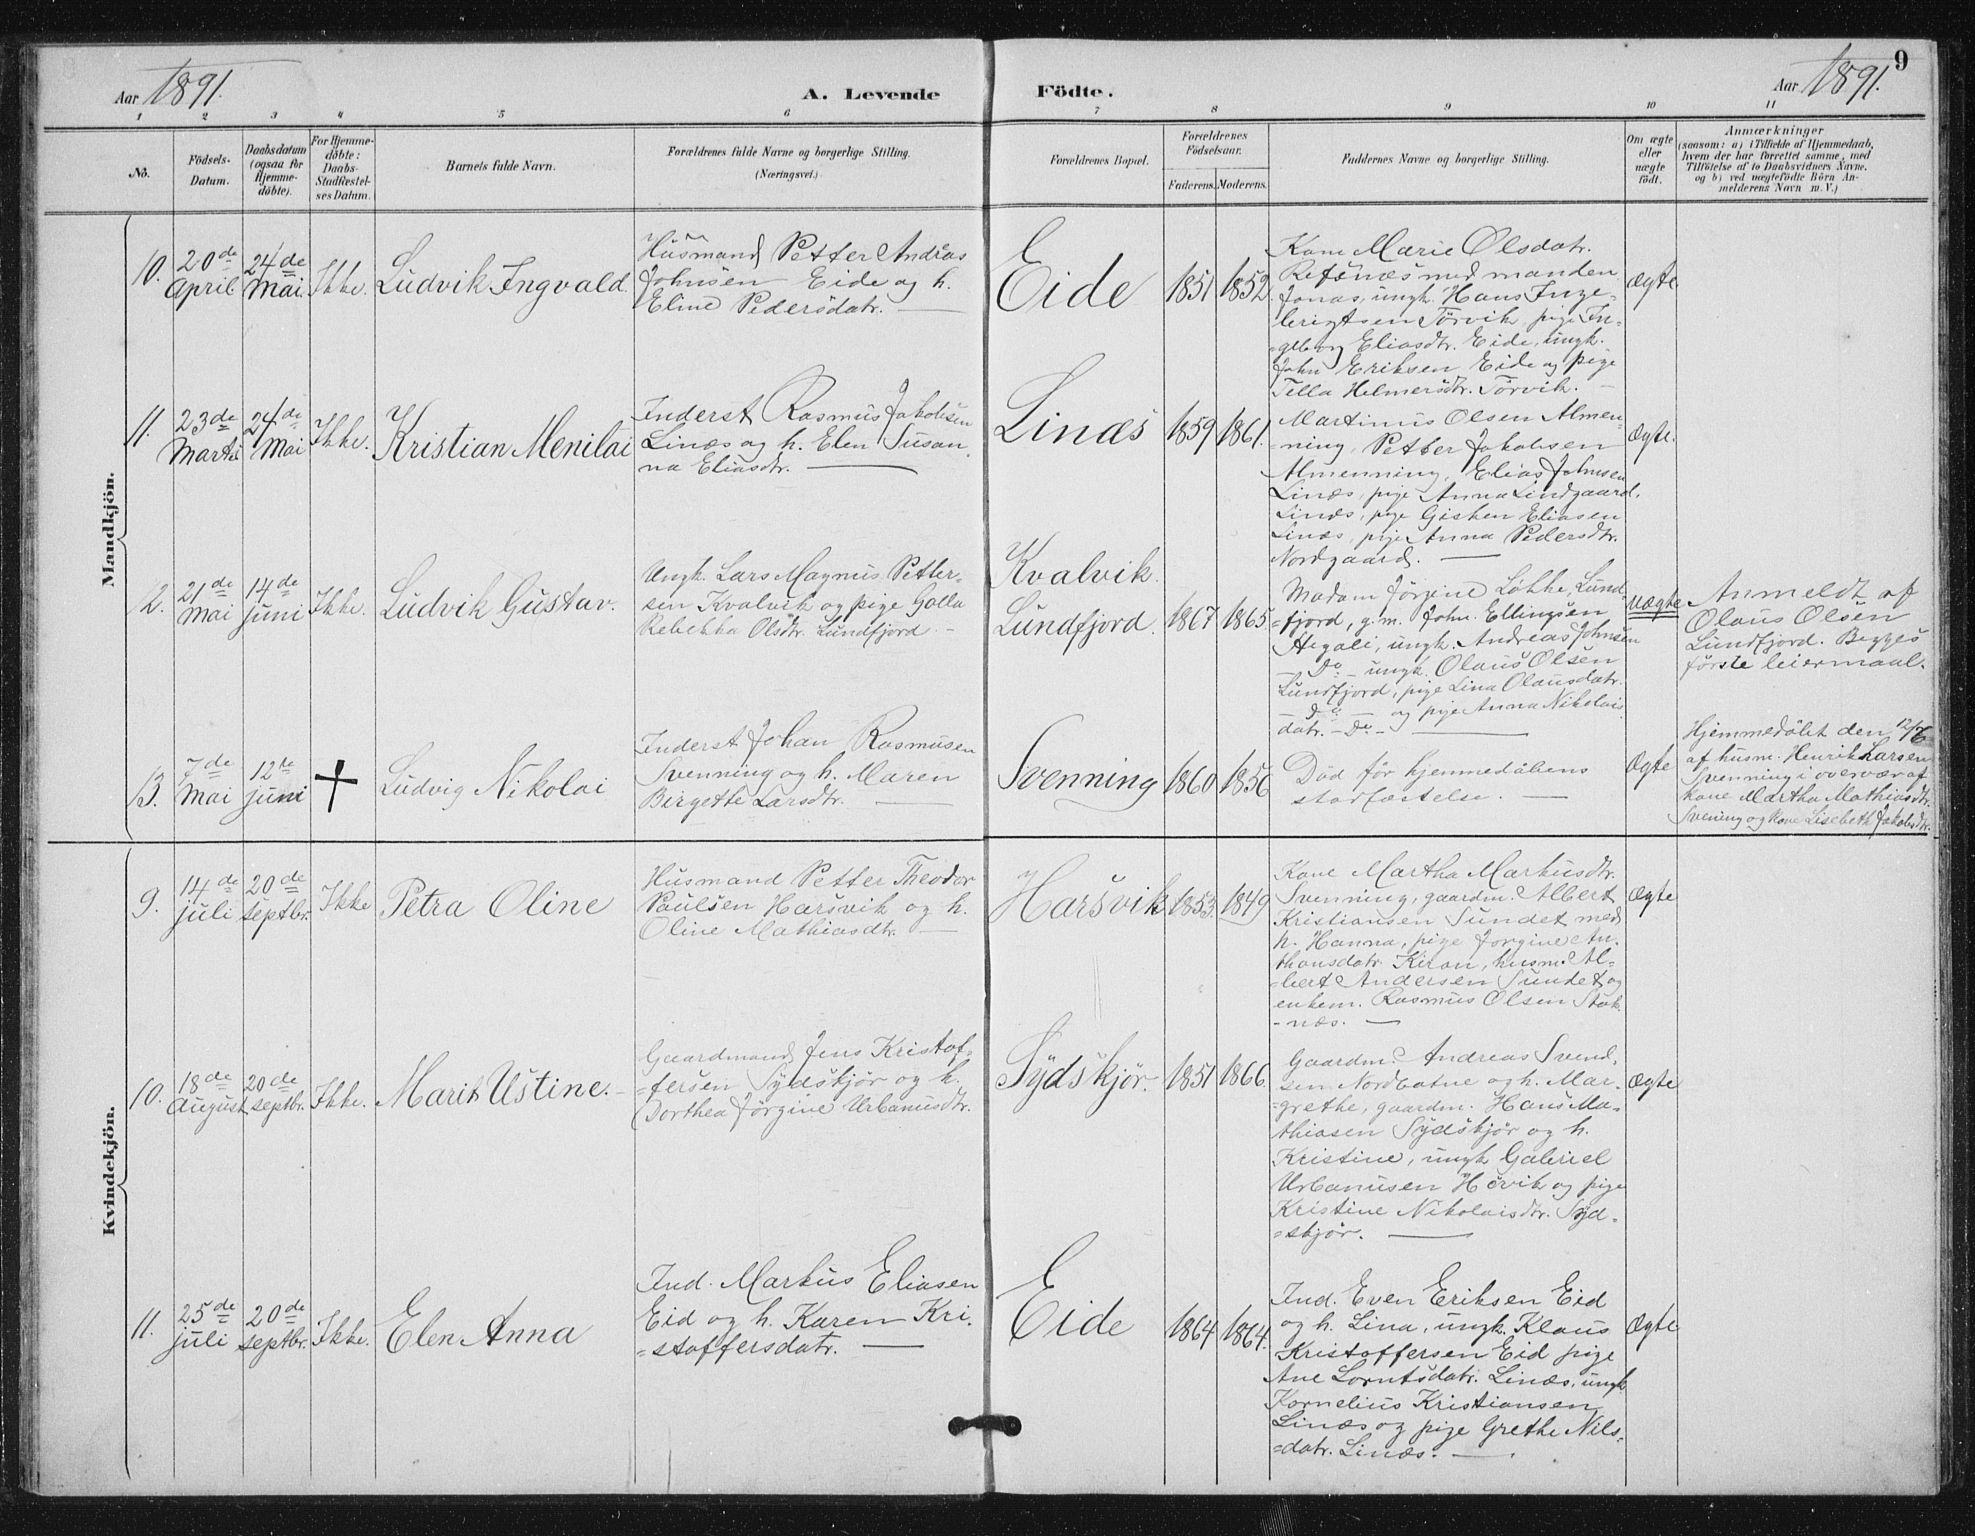 Aar 1891.
A. Levende
Födte.
Aar 1891.
9
1 2 3 4 5 6 7 8 9 10 11
No.
Födsels-
Datum.
Daabsdatum
(ogsaa for
Hjemme-
döbte).
For Hjemme-
döbte:
Daabs-
Stadfæstel-
ses Datum.
Barnets fulde Navn.
Forældrenes fulde Navne og borgerlige Stilling.
(Næringsvei.)
Forældrenes Bopæl.
Forældrenes
Födselsaar.
Faderens. Moderens.
Faddernes Navne og borgerlige Stilling.
Om ægte
eller
uægte
födt.
Anmærkninger
(saasom: a) i Tilfælde af Hjemmedaab,
hvem der har forrettet samme, med
Tilföielse af to Daabsvidners Navne,
og b) ved uægtefödte Börn An-
melderens Navn m. V.)
Mandkjön.
10.
20de
April
24de
Mai
Ikke.
Ludvik Ingvald.
Husmand Petter Andreas
Johnsen Eide og h.
Eline Pedersdatr.
Eide
1851
1852
Kone Marie Olsdatr.
Refsnæs med manden
Jonas, ungk. Hans Inge-
brigtsen Törvik, pige In-
=geborg Eliasdtr. Eide, ungk.
John Eriksen Eide og pige
Tella Helmersdtr. Törvik.
Ægte
11.
23de
Marts
24de
Mai
Ikke.
Kristian Menilai
Inderst Rasmus Jakobsen
Linæs og h. Elen Susan-
na Eliasdtr.
Linæs
1859
1861.
Martinus Olsen Almen-
=ning, Petter Jakobsen
Almenning, Elias Johnsen
Linæs, pige Anna Lindgaard,
Linæs, pige Gisken Eliasen
Linæs, pige Anna Pedersdtr.
Nordgaard.
Ægte.
12.
21de
Mai
14de
juni
Ikke.
Ludvik Gustav.
Ungk. Lars Magnus Petter-
sen Kvalvik og pige Golla
Rebekka Olsdtr. Lundfjord.
Kvalvik.
Lundfjord.
1867
1865
Madam Jörgine Løkke, Lund
=fjord, g.m. John Ellingsen
Hegali, ungk. Andreas Johnsen
Do ungk. Olaus Olsen
Lundfjord, pige Lina Olausdatr.
Do og pige Anna Nikolais
datr. Do
uægte
Anmeldt af
Olaus Olsen
Lundfjord. Begges
første leiermaal.
13.
7de
Mai
12te
juni
†
Ludvig Nikolai
Inderst Johan Rasmusen
Svenning og h. Maren
Birgette Larsdtr.
Svenning
1860
1856
Død før hjemmedåbens
stadfæstelse.
Ægte
Hjemmedöbt den 12/6
af husm. Henrik Larsen
Svenning i overvær af
kone Martha Mathiasdtr.
Svening og kone Lisebeth Jakobsdtr.
Kvindekjön.
9.
14de
juli
20de
septbr.
Ikke
Petra Oline
Husmand Petter Theodor
Paulsen Harsvik og h.
Oline Mathiasdtr.
Harsvik
1853.
1849
Kone Martha Markusdtr.
Svenning, gaardm. Albert
Kristiansen Sundet med
h. Hanna, pige Jorgine An-
thonsdatr. Kiran, husm. Al-
=bert Andersen Sundet og
enkem. Rasmus Olsen Stok-
-næs.
Ægte
10.
18de
August
20de
septbr.
Ikke.
Marit Ustine.
Gaardmand Jens Kristof-
=fersen Sydskjør og h.
Dorthea Jørgine Urbanusdtr.
Sydskjør.
1851
1866.
Gaardm. Andreas Svend-
sen Nordbotne og h. Mar-
=grethe, gaardm. Hans Ma-
thiasen Sydskjør og h.
Kristine, ungk Gabriel
Urbanusen Hövik og pige
Kristine Nikolaisdtr. Syd-
=skjør.
Ægte
11.
25de
juli
20de
septbr.
Ikke.
Elen Anna
Ind. Markus Eliasen
Eid og h. Karen Kri-
=stoffersdatr.
Eide
1864
1864.
Ind. Even Eriksen Eid
og h. Lina, ungk. Klaus
Kristoffersen Eid pige
Ane Lorntsdatr. Linæs, ungk
Kornelius Kristiansen
Linæs og pige Grethe Nils-
=datr. Linæs.
Ægte